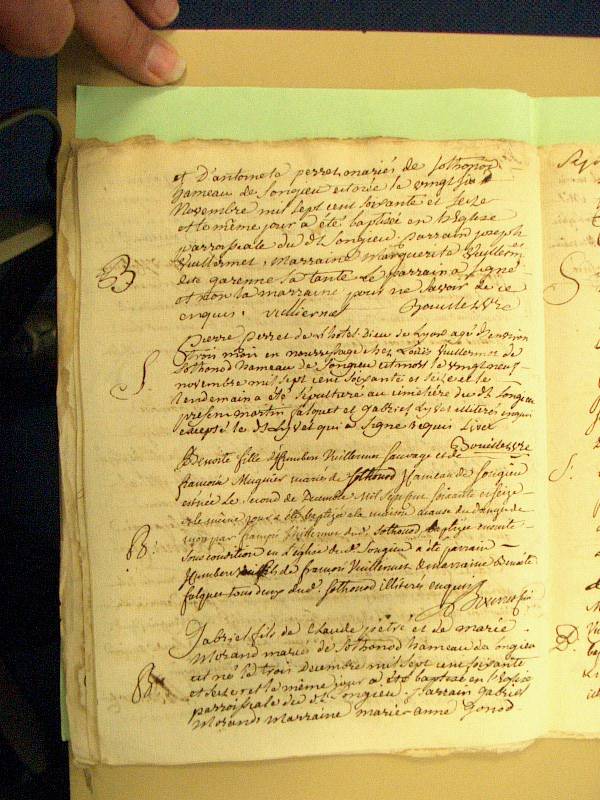 et D'antoinete perret mariés de Sothonod
hameau de Songieu est née le vingt six
Novembre mil sept cent soixante et seize
et le même jour a été baptisée en l'Eglise
parroissiale du dt Songieu. parrain joseph
Vuillermet, marraine marguerite Vuillermet
dite garenne sa tante Le parrain a signé
et non la marraine pour ne savoir de ce
enquis. vulliermet
B
Pierre perret de L'hotel dieu de Lyon agé d'environ
trois mois en nourrissage chez Louis Vuillermet de
Sothonod hameau de Songieu est mort le vingt neuf
novembre mil sept cent soixante et seize et le
lendemain a été sépulturé au cimetière du dt Songieu
présent martin falquet et gabriel Lyvet illiteres enquis
excepté le dt Lyvet qui a signé requis Livet
S.
Benoite fille d'humbert Vuillermet Sauvage et de
francoise Muguier mariés de Sothonod hameau de Songieu
est née Le Second de Decembre Mil Sept cent soixante et seize
et le même jour a été baptizé a la maison a cause du danger de
mort par françois Vuillermet du d. Sothonod baptizée ensuite
sous condition en L'eglise du d. Songieu a été parrain
humbert fils de francois Vuillermet et marraine Benoite
falquet tous deux du d. Sothonod illiterés enquis
B.
Gabriel fils de Claude et de marie
Morand mariés de Sothonod hameau de Songieu
est né le trois Decembre mil sept cent soixante
et seize et le même jour a été baptisé en l'Eglise
parroissiale du dt Songieu. Parrain Gabriel
Morand, Marraine marie-anne Gonod
B.